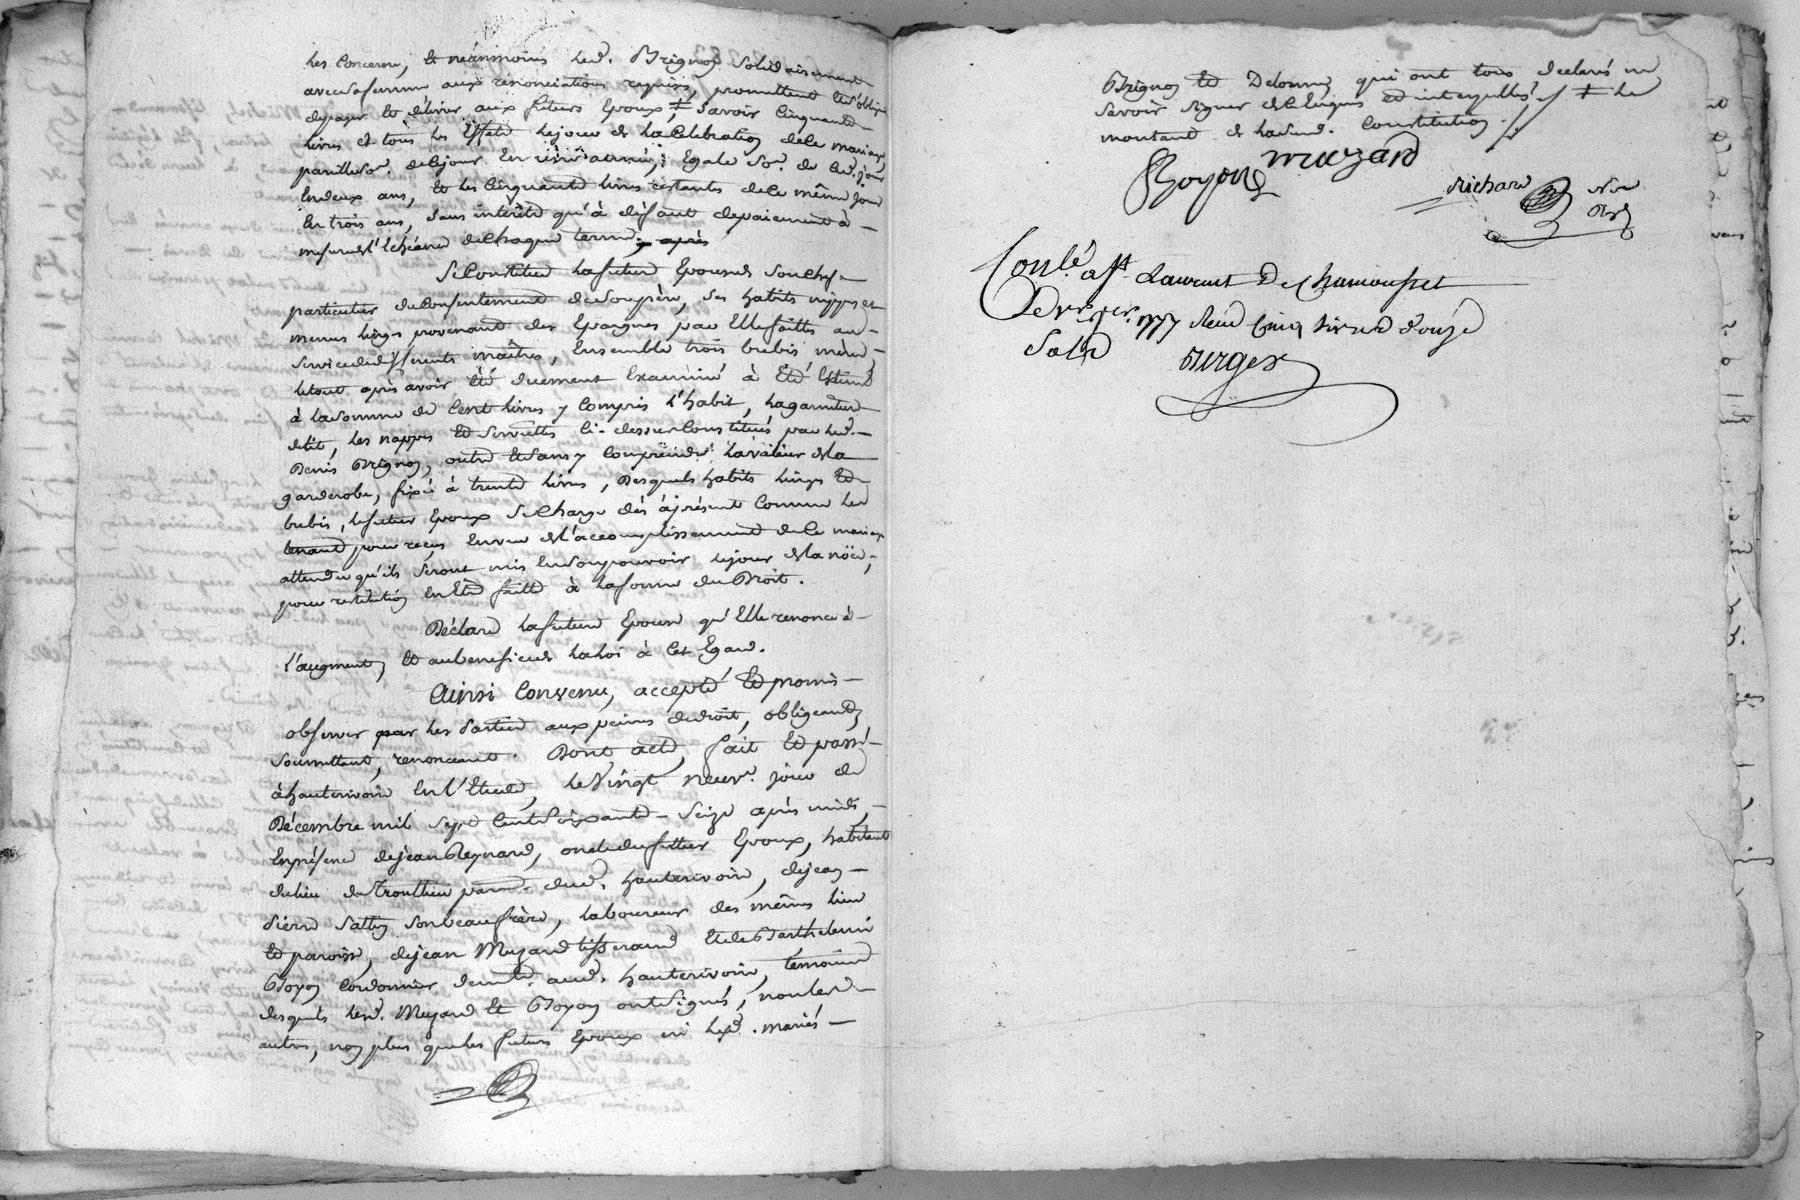 les concerne, et néanmoins led. Brignon solidairement
avec sa femme aux renonciations requises, promettent et s'obligent
de payer et délivrer aux futurs Epoux ≠ Savoir Cinquante
livres et tous les Effets le jour de la Célébration de ce mariage
pareille So. de ce jour En une année, Egale So. de ce d. jour
En deux ans, et les Cinquante livres restantes de ce même jour
En trois ans, sans intérêts qu'à défaut de paiement à
mesure de l'Echéance de chaque terme. après
Se Constitue la future Epouse de son Chef
particulier du Consentement de son père, ses habits nippes et
menus linges provenant des Epargnes par Elle faittes au
service de différents maîtres, Ensemble trois brebis mères,
le tout après avoir Eté duement Examiné à Eté Estimé
à la somme de Cent livres y compris l'habit, la garniture
de lit, les nappes et serviettes Ci-dessus Constitués par led.
Denis Brignon, outre et sans y Comprendre la valeur de la
garderobe, fixée à trente livres, Desquels habits linges et
brebis, le futur Epoux se Charge dès àprésent Comme les
tenant pour reçus, En vue de l'accomplissement de ce mariage
attendu qu'ils seront mis En son pouvoir le jour de la nôce,
pour restitution En Etre faitte à la forme du Droit.
Déclare la future Epouse qu'Elle renonce à
l'augment, et au benefice de la loi à cet Egard.
Ainsi Convenu, accepté et promis
observer par les Parties aux peines de droit, obligeant,
Soumettant, renonceant. Dont acte, fait et passé
à hauterivoire En l'Etude, le Vingt neuve. jour de
Décembre mil Sept Cent Soixante-Seize après midi,
En présence de jean Reynard, oncle du futur Epoux, habitant
du lieu du Trouthieu parse. dud. hauterivoire, de jean
Pierre Sattin son beaufrère, laboureur des mêmes lieu
et paroisse, de jean Muzard tisserand Et de Barthelemi
Boyon Cordonnier demt. aud. hauterivoire, temoins
desquels lesd. Muzard et Boyon ont signés, non les
autres, non plus que les futurs Epoux ni lesd. mariés
Brignon et Delorme qui ont tous déclarés ne
savoir signer de ce Enquis et interpellés ≠ le
montant de lad. Constitution.
Boyon muzard
Richard Nre
Roy.
Conlé. a St. Laurent De Chamousset
Le 1777 Reçu Cinq livres douze
Sols
Durger